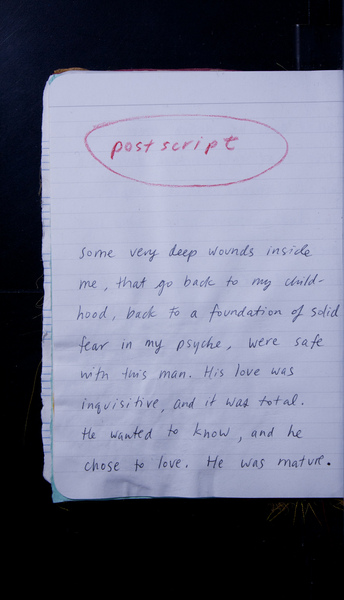 postscript
Some very deep wounds inside
me, that go back to my child-
hood, back to a foundation of solid
fear in my psyche, were safe
with this man. His love was
inquisitive, and it was total.
He wanted to know, and he
chose to love. He was mature.